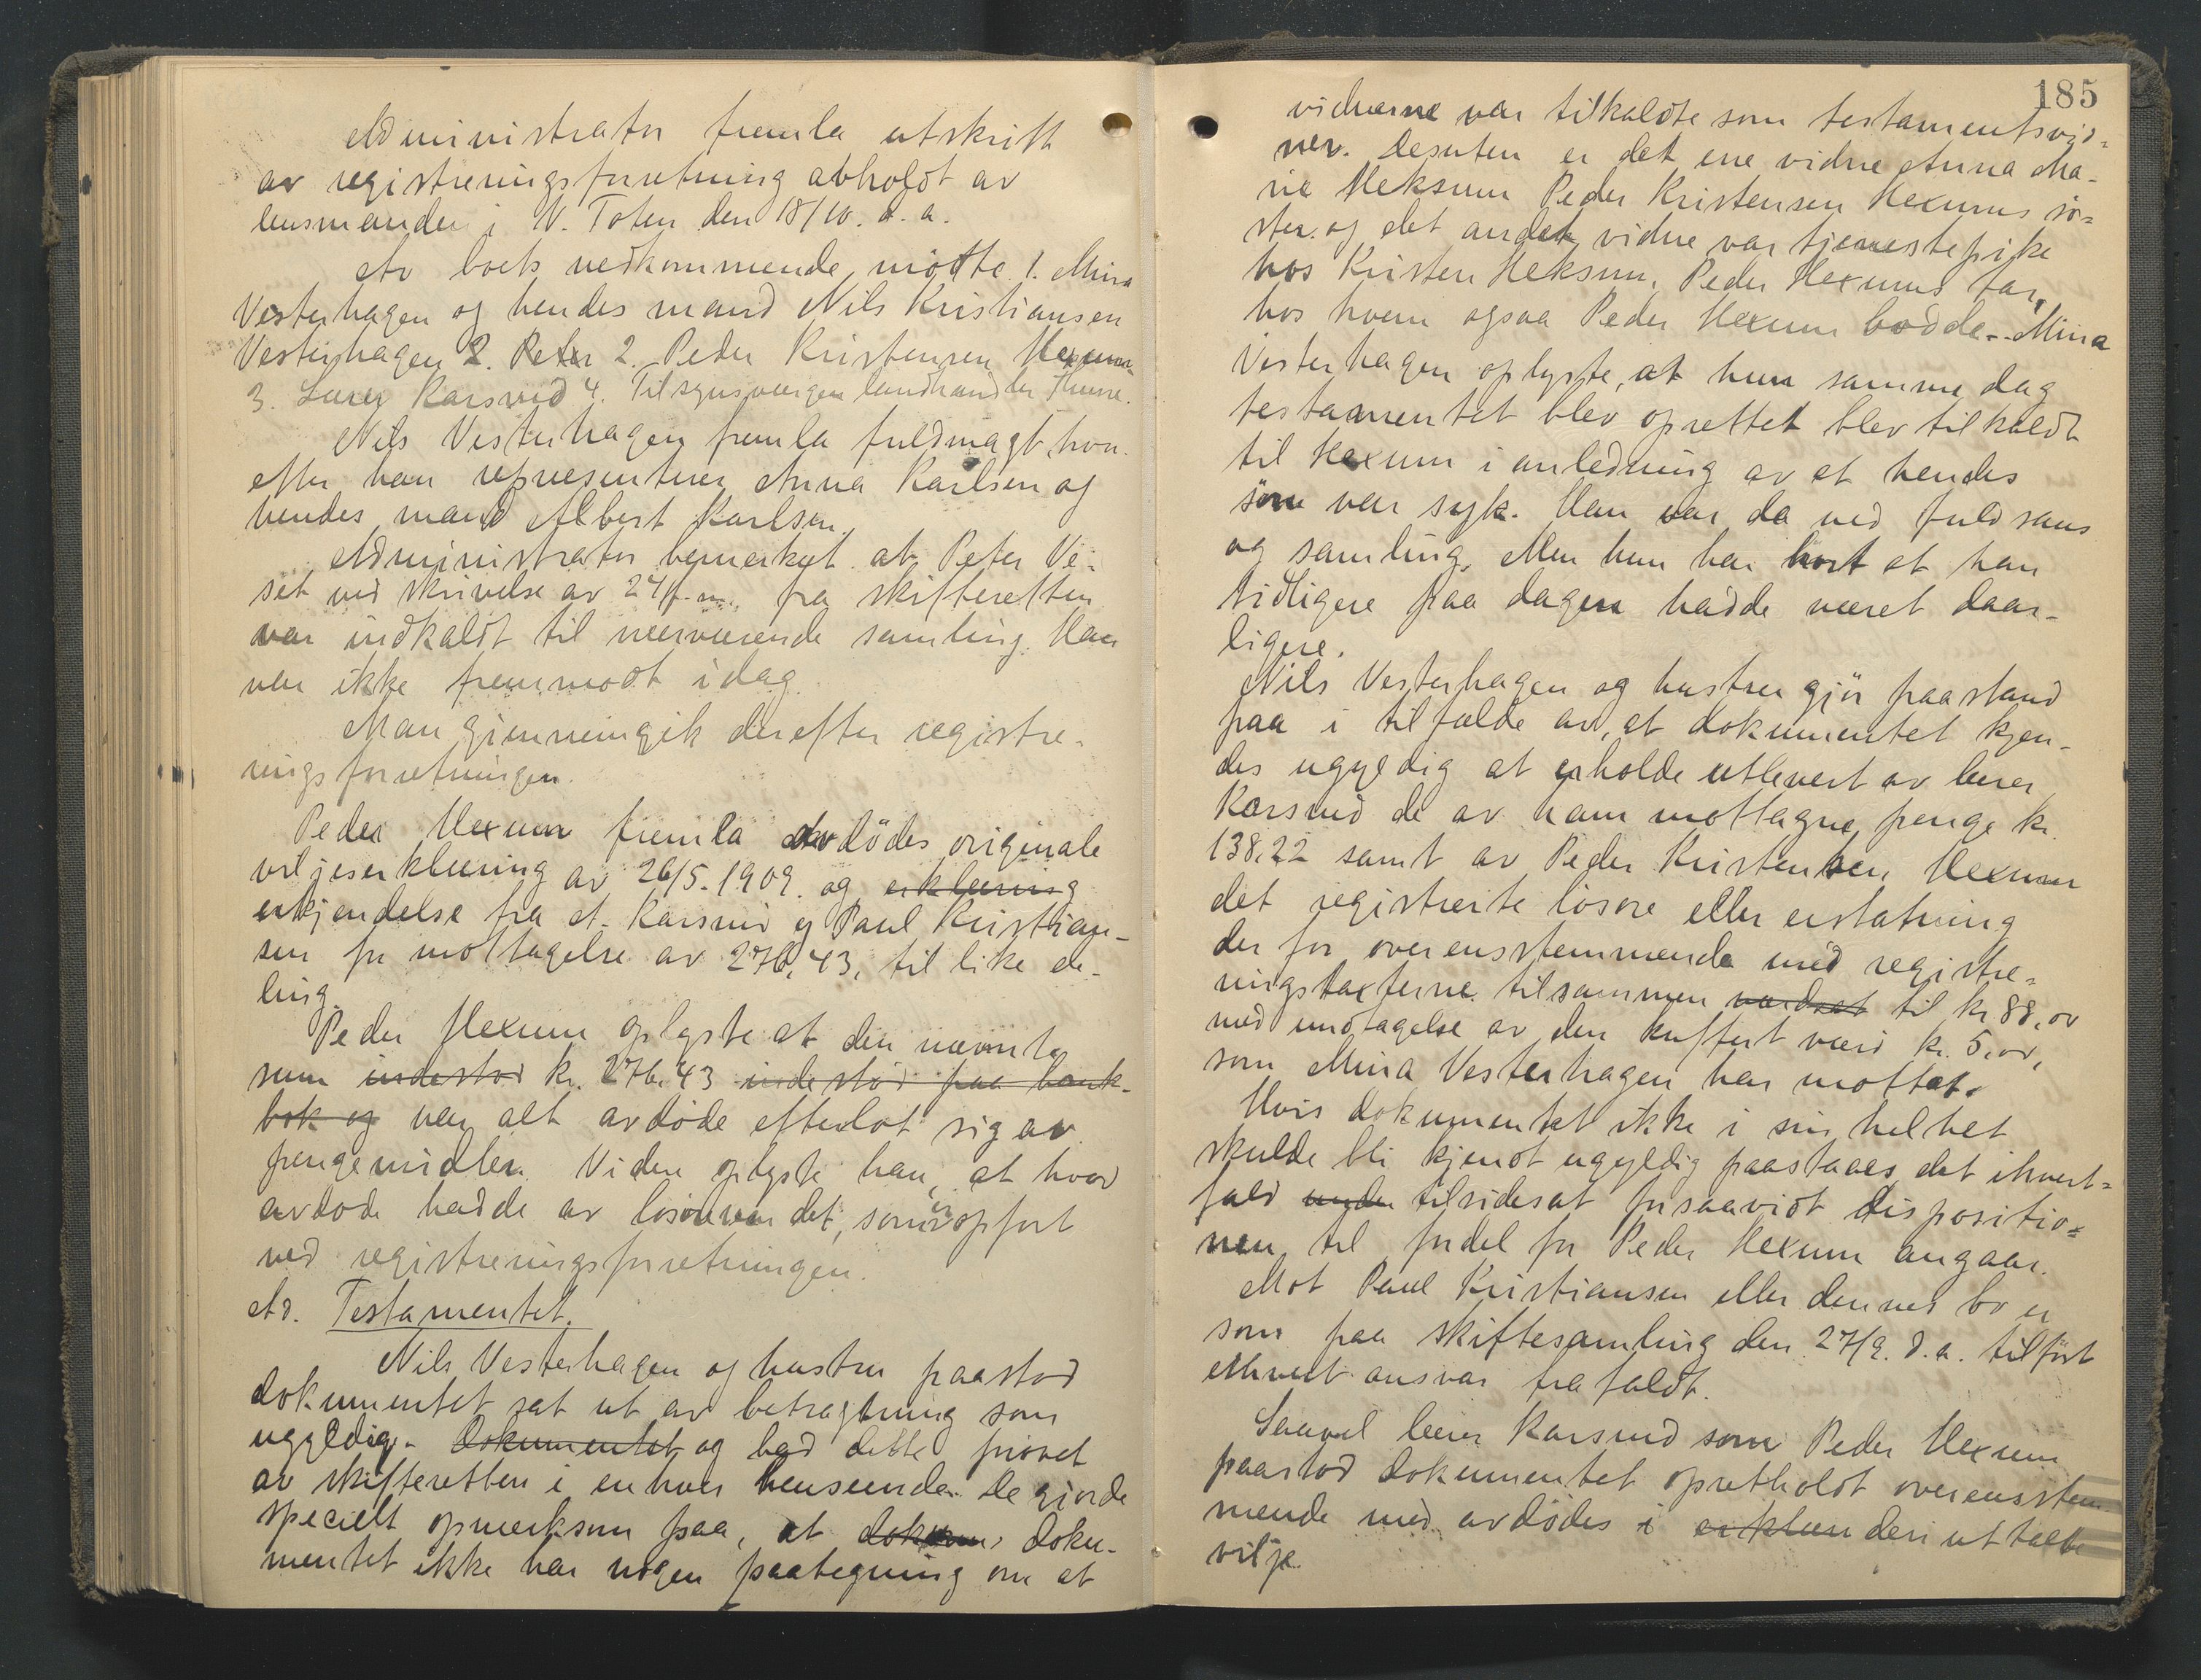 Administrator fremla utskrift
av registreringsforretning avholdt av
lensmanden i V. Toten den 18/10. d. a.
Av boets vedkommende mötte 1. Mina
Vesterhagen og hendes mand Nils Kristiansen
Vesterhagen 2. Peter 2. Peder Kristensen Hexum
3. Lærer Karsrud 4. Tilsynsværgen landhandler
Nils Vesterhagen fremla fuldmagt hvor-
efter han representerer Anna Karlsen og
hendes mand Albert Karlsen.
Administrator bemerket at Peter Ve-
set ved skrivelse av 24/f. m. fra skifteretten
var indkaldt til nærværende samling. Han
var ikke fremmødt idag.
Man gjennemgik derefter registre-
ringsforretningen.
Peder Hexum fremla avdödes originale
viljeserklæring av 26/5. 1909. og erklæring
erkjendelse fra A. Karsrud og Paul Kristian-
sen for mottagelse av 276,43, til like de-
ling.
Peder Hexum oplyste at den nævnte
sum indestod kr. 276,43 indestod paa bank-
bok og var alt avdöde efterlot sig av
pengemidler. Videre oplyste han, at hvad
avdöde hadde av lösöre var det, som er opfört
ved registreringsforretningen.
Ad. Testamentet.
Nils Vesterhagen og hustru paastod
dokumentet sat ut av betragtning som
ugyldig. Dokumentet og bad dette prövet
av skifteretten i enhver henseende. De gjorde
specielt opmerksom paa, at dokum doku-
mentet ikke har nogen paategning om at
185
vidnerne var tilkaldte som testamentsvid-
ner. Desuten er det ene vidne Anna Ma-
rie Heksum Peder Kristensen Hexums sö-
ster og det andet vidne var tjenestepike
hos Kristen Heksum, Peder Hexums far,
hos hvem ogsaa Peder Hexum bodde. Mina
Vesterhagen oplyste, at hun samme dag
testamentet blev oprettet blev tilkaldt
til Hexum i anledning av at hendes
sön var syk. Han var da ved fuld sans
og samling. Men hun har hört at han
tidligere paa dagen hadde været daar-
ligere.
Nils Vesterhagen og hustru gjör paastand
paa i tilfælde av, at dokumentet kjen-
des ugyldig at erholde utlevert av lærer
Karsrud de av ham mottagne penge kr.
138,22 samt av Peder Kristensen Hexum
det registrerte lösöre eller erstatning
der for overensstemmende med registre-
ringstaxterne tilsammen værdsat til kr 88,00
med undtagelse av den kuffert værd kr. 5,00,
som Mina Vesterhagen har mottat.
Hvis dokumentet ikke i sin helhet
skulde bli kjendt ugyldig paastaaes det ihvert-
fald under tilsidesat forsaavidt dispositio-
nen til fordel for Peder Hexum angaar.
Mot Paul Kristiansen eller dennes bo er
som paa skiftesamling den 27/9. d. a. tilfört
ethvert ansvar frafaldt.
Saavel lærer Karsrud som Peder Hexum
paastod dokumentet opretholdt overensstem-
mende med avdödes i erklær deri uttalte
vilje.